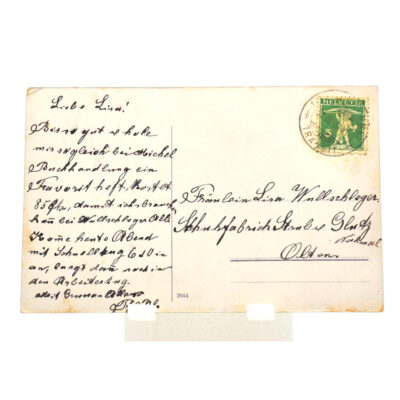 Liebe Lisa!
Bis so gut & hole
mir sogleich bei Michel
Buchhandlung ein
Favorit heft, kostet
85 Cts, damit ich
bei Wullschleger Olten
Komme heute Abend
mit Schnellzug 6 10 in
an, langt dann noch in
den Arbeiterzug.
HELVETIA
5
Fräulein Lisa Wullschleger
Schuhfabrick Strub & Glutz
Olten
2044